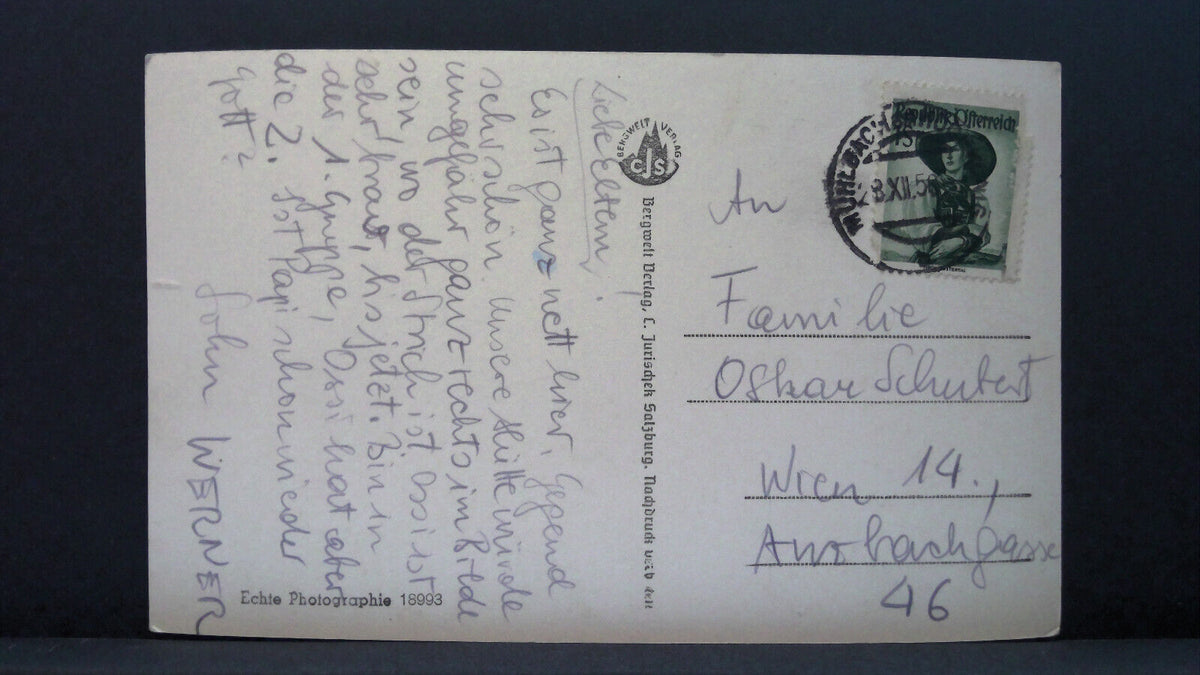 Liebe Eltern!
Es ist ganz nett hier, Gegend
sehr schön. Unsere Hütte würde
ungefähr ganz rechts im Bilde
sein, wo der Strich ist. Ossi ist
sehr brav, bis jetzt. Bin in
der 1. Gruppe, Ossi hat aber
die 2. Ist Papi schon wieder
gott?
Sohn WERNER
Echte Photographie 18993
BERGWELT VERLAG
CJS
Bergwelt Verlag, C. Jurischek Salzburg. Nachdruck
Republik Österreich
MÜHLBACH
28.XII.5
An
Familie
Oskar Schubert
Wien 14.,
Amsbachgasse
46